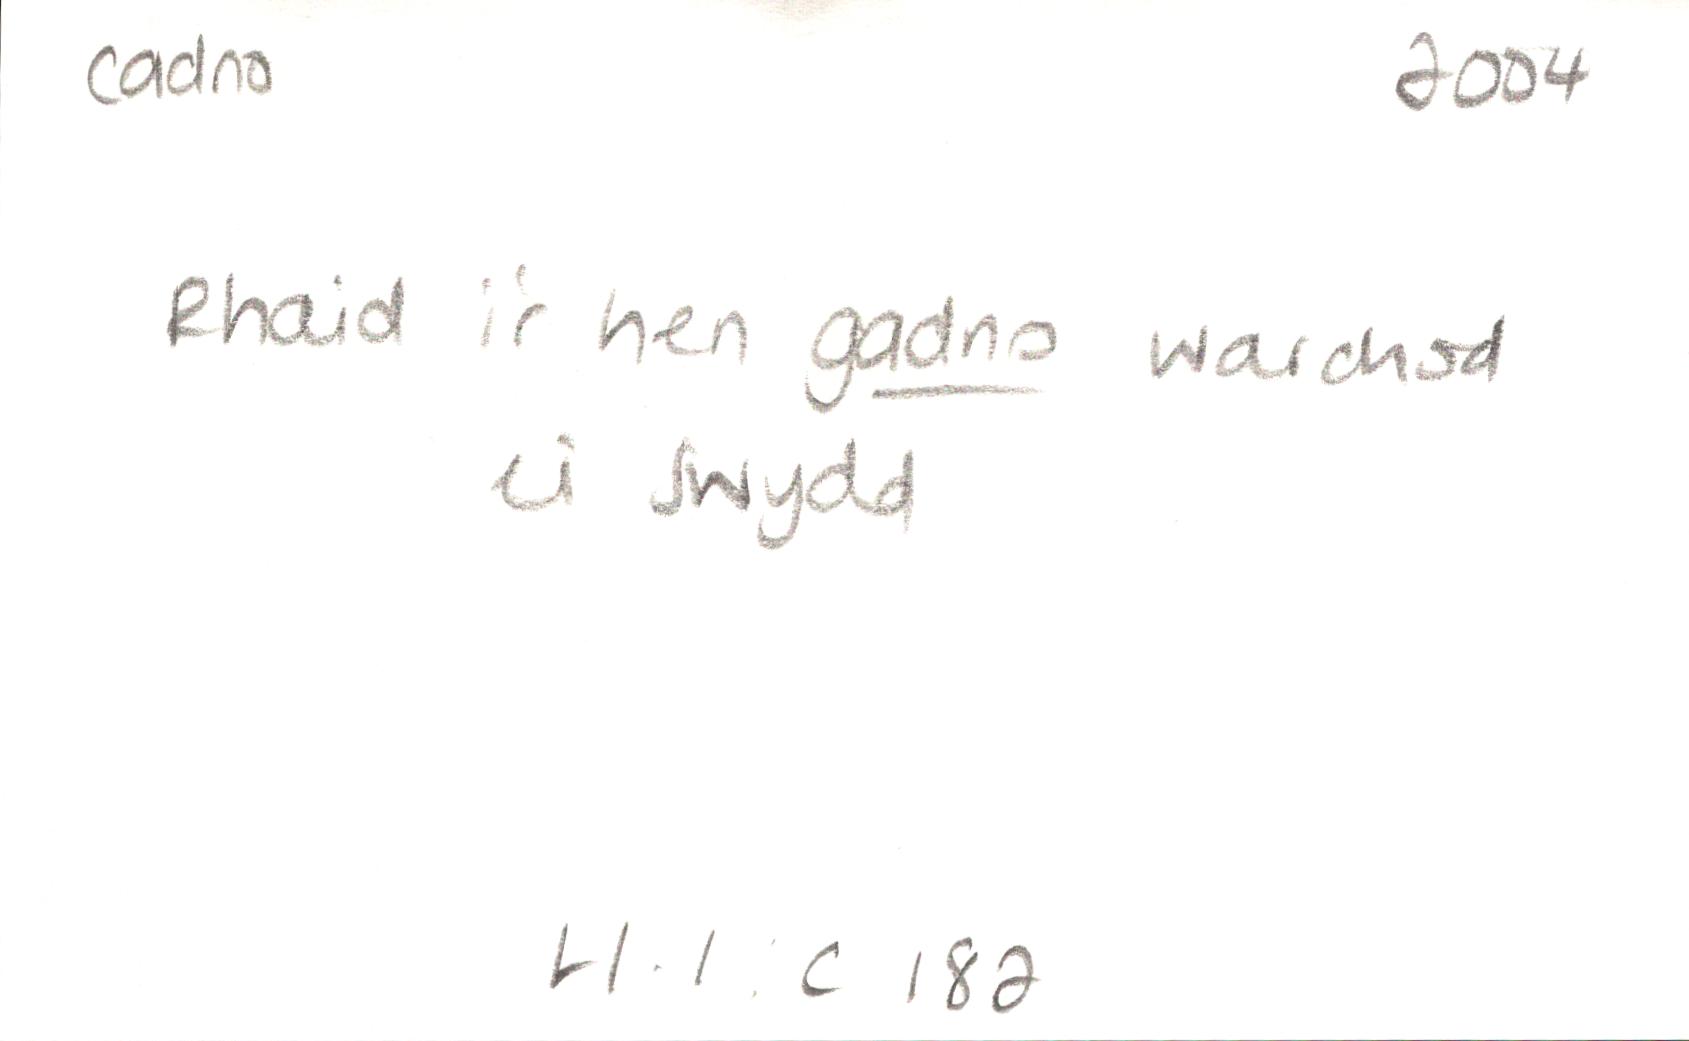 cadno 2004
Rhaid i'r hen gadno warchod
ei swydd
Ll.l : C 182